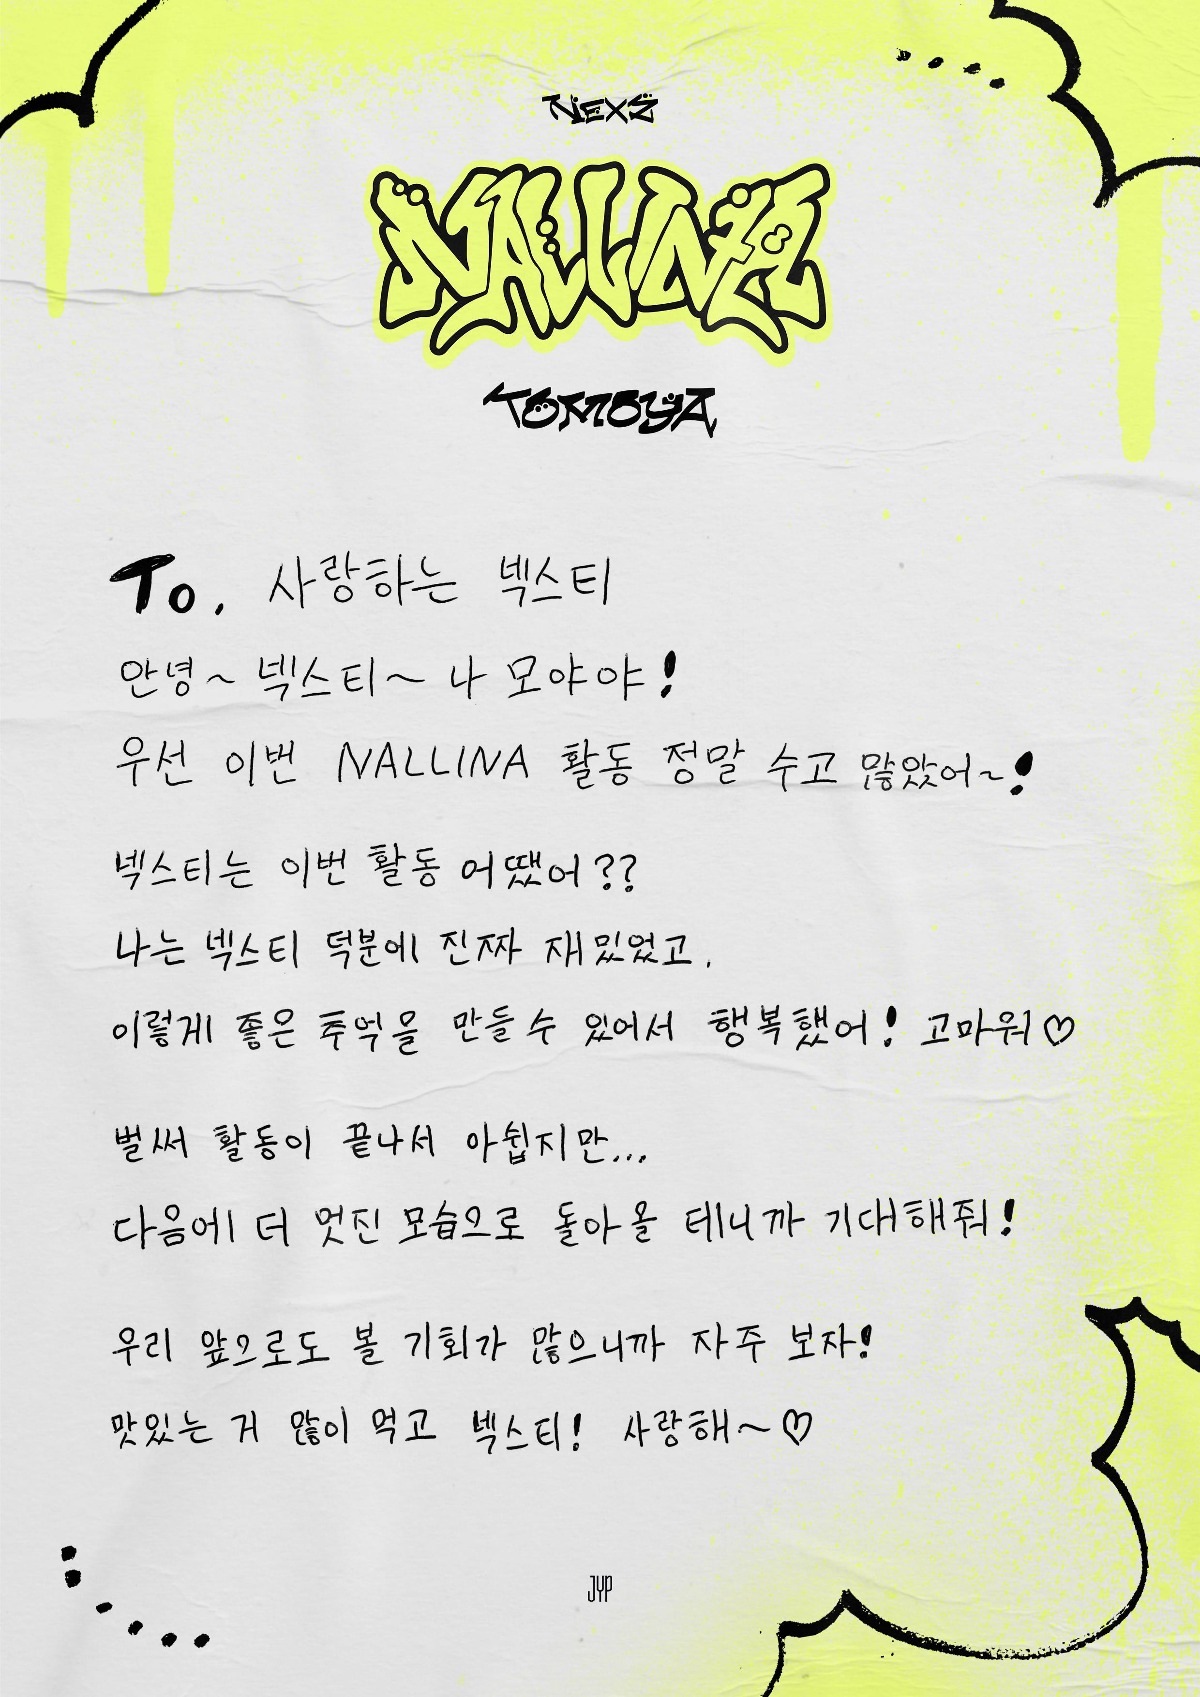 NEXZ
NALLINA
TOMOYA
To. 사랑하는 넥스티
안녕~ 넥스티~ 나 모야야!
우선 이번 NALLINA 활동 정말 수고 많았어~!
넥스티는 이번 활동 어땠어??
나는 넥스티 덕분에 진짜 재밌었고.
이렇게 좋은 추억을 만들 수 있어서 행복했어! 고마워♡
벌써 활동이 끝나서 아쉽지만...
다음에 더 멋진 모습으로 돌아올 테니까 기대해줘!
우리 앞으로도 볼 기회가 많으니까 자주 보자!
맛있는 거 많이 먹고 넥스티! 사랑해~♡
JYP